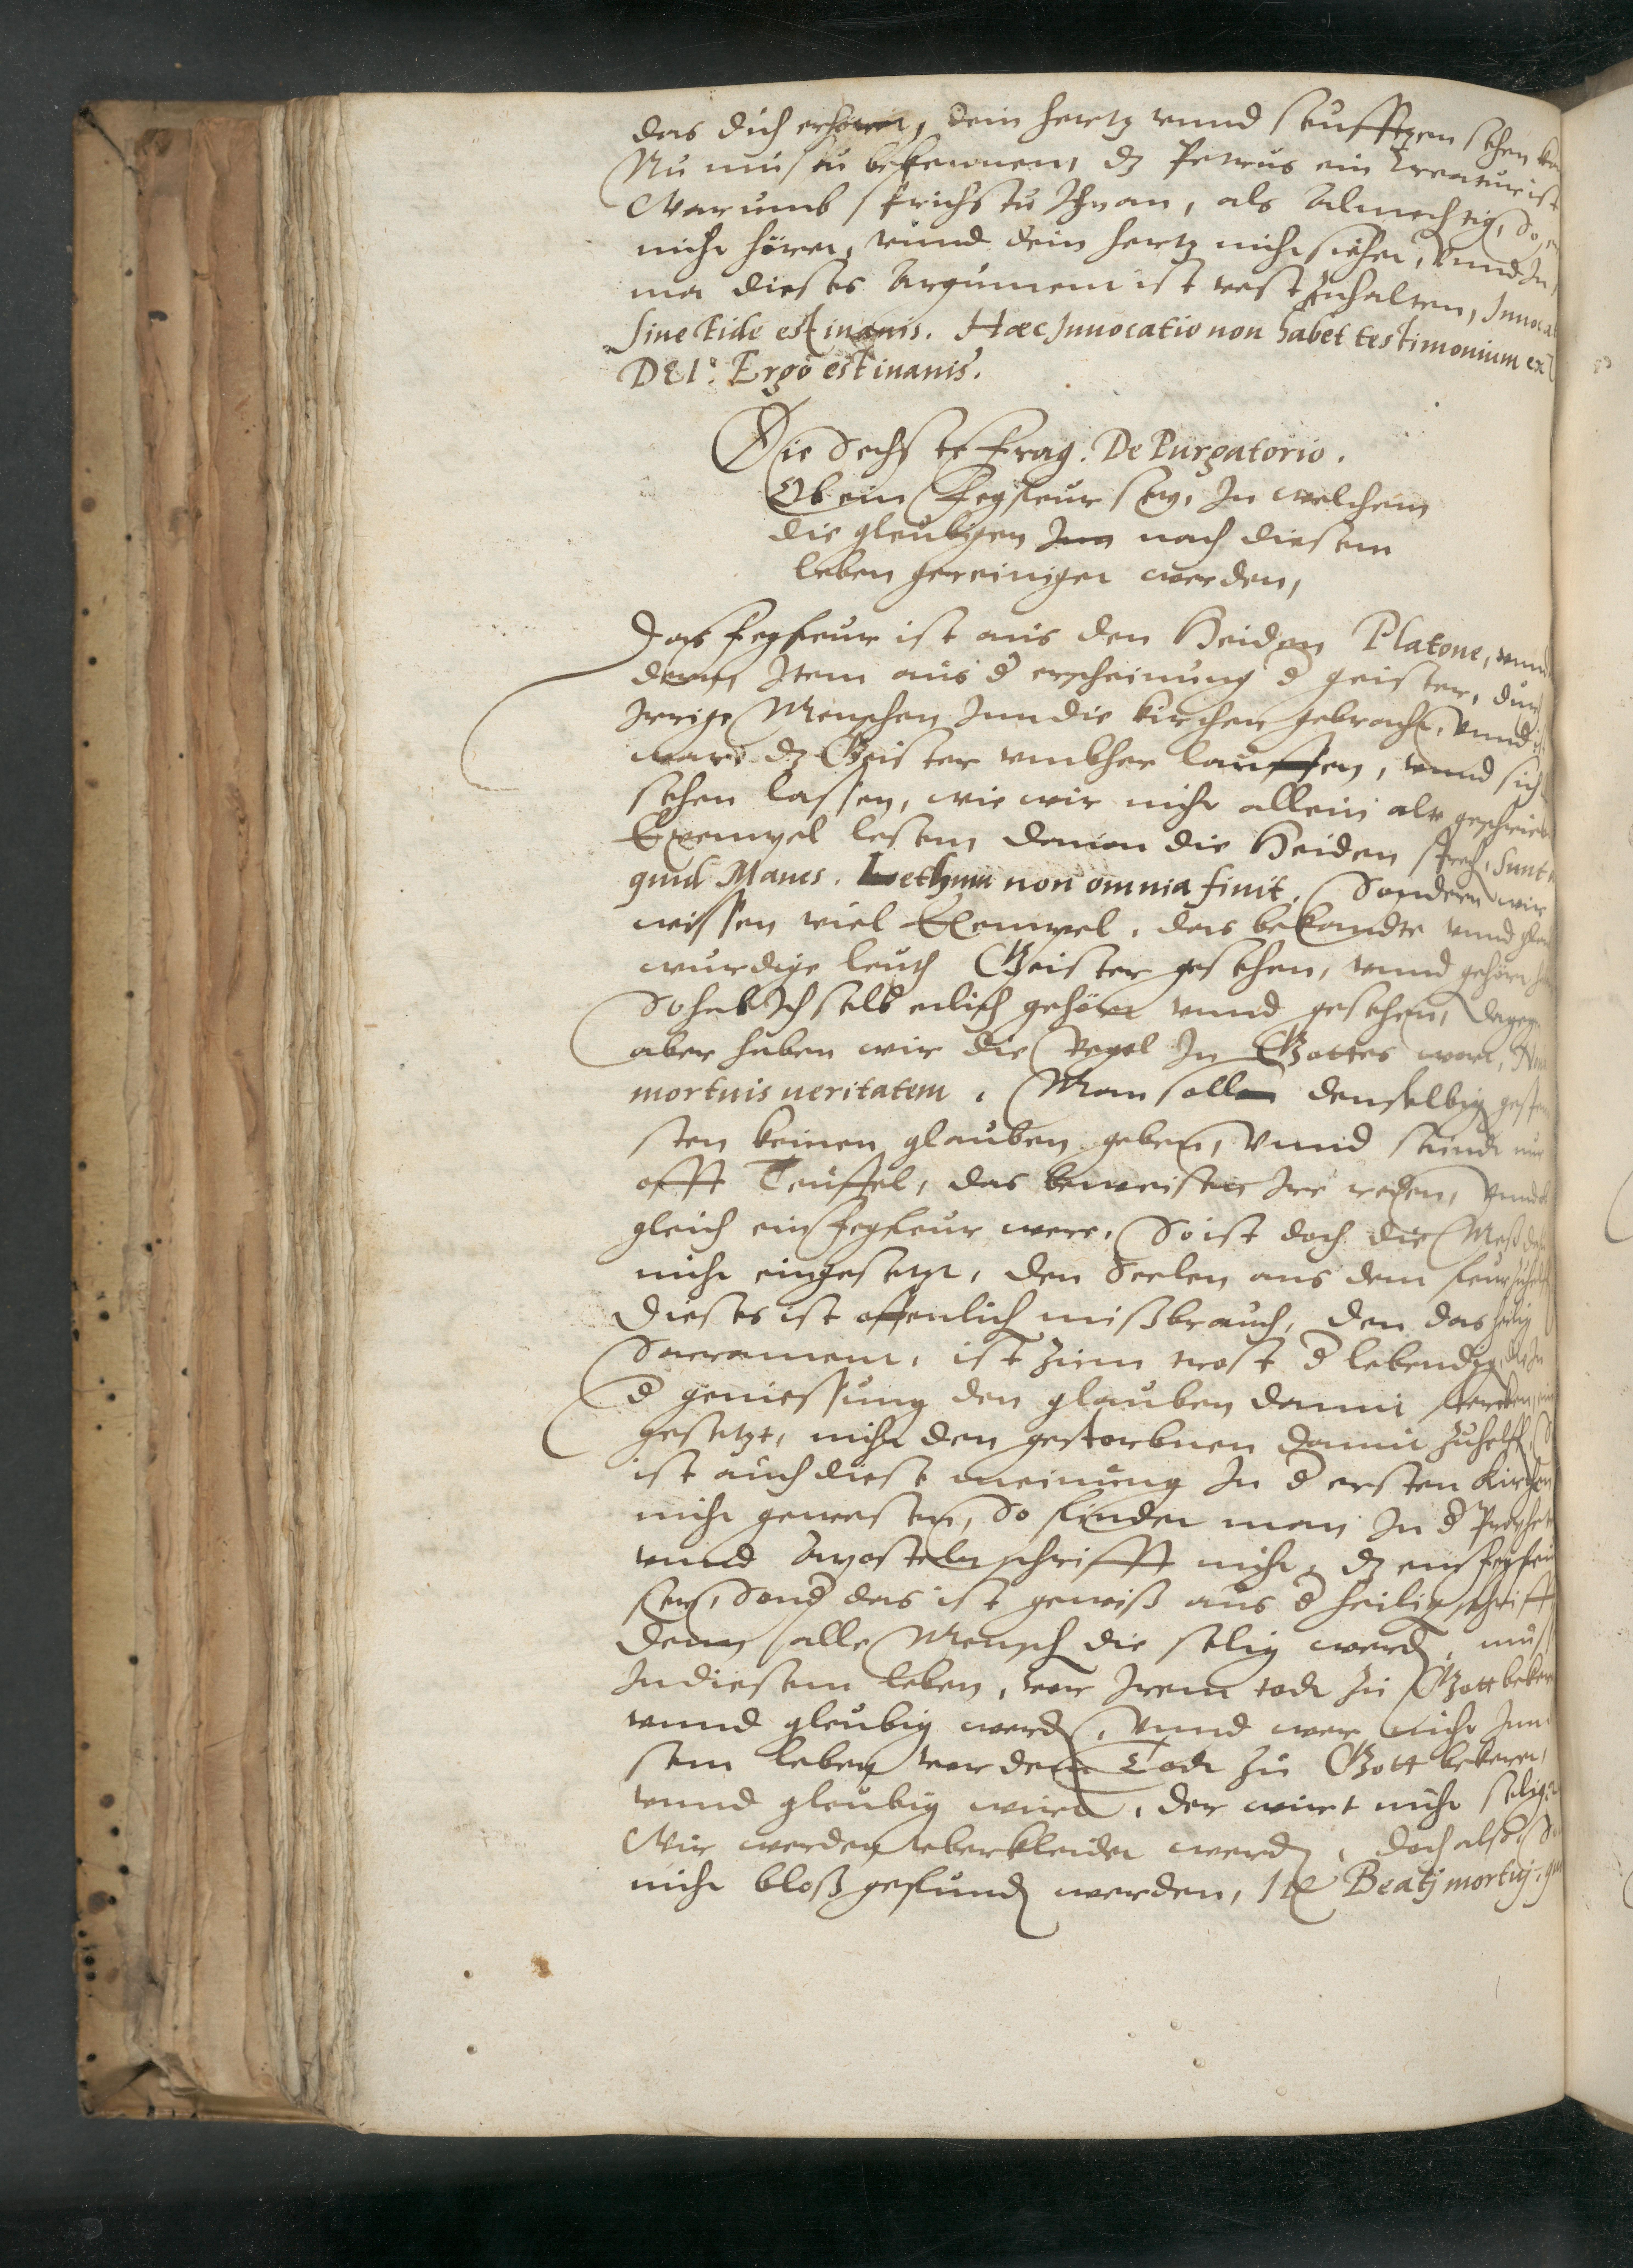 das dich erhöret, dein hertz vnnd seufftzen sehen
Nu mustu bekennen, dz Petrus ein Creatur ist
Warumb sprichstu Ihn an, als Almechtig, So
nicht höret, vnnd dein hertz nicht siehet, Vnnd In
ma dieses Argument ist vest zuhalten,
Sine Fide est inanis. Hæc Inuocatio non habet testimonium ex
DEI. Ergo est inanis.
Die Sechste Frag. De Purgatorio.
Ob ein Fegfeur sey, In welchem
die gleubigen Inn nach diesem
leben gereiniget werden,
Das fegfeur ist aus den Heiden Platone, vnnd
Item aus d erscheinung d geister, durch
Irrige Menschen Inn die kirchen gebracht, Vnnd
war dz Geister vmbher lauffen, vnnd sich
sehen lassen, wie wir nicht allein alte
Exempel lesen dauon die Heiden sprech, Sunt
quid Manes. Lethum non omnia finit. Sondern wir
wissen viel Exempel, das bekandte vnnd
wurdige leuth Geister gesehen, vnnd gehört
So hab Ich selb etlich gehört vnnd gesehen,
aber haben wir die Regel In Gottes wort,
mortuis ueritatem. Man soll denselbig
sten keinen glauben geben, Vnnd seind nur
offt Teuffel, das beweisen Ire reden,
gleich ein fegfeur were, So ist doch die Meß
nicht eingesetzt, den Seelen aus dem feur
Dieses ist offenlich mißbrauch, den das heilig
Sacrament, ist zum trost d lebendig, die In
d geniessung den glauben damit stercken,
gesetzt, nicht den gestorbnen damit zuhelff,
ist auch diese meinung In d ersten Kirchen
nicht gewesen, So findet man In d Prophet
vnnd Aposteln schrifft nicht, dz ein fegfeur
sey, Sond das ist gewiß aus d heilig schrifft
denn alle Mensch die selig werd, muss
In diesem leben, vor Irem todt zu Gott
vnnd gleubig werd, Vnnd wer nicht Inn
sem leben vor dem Todt zu Gott bekeret,
vnnd gleubig wirt, der wirt nicht selig
Wir werden uberkleidet werd, doch also
nicht bloß gefund werden, Beatj mortuj